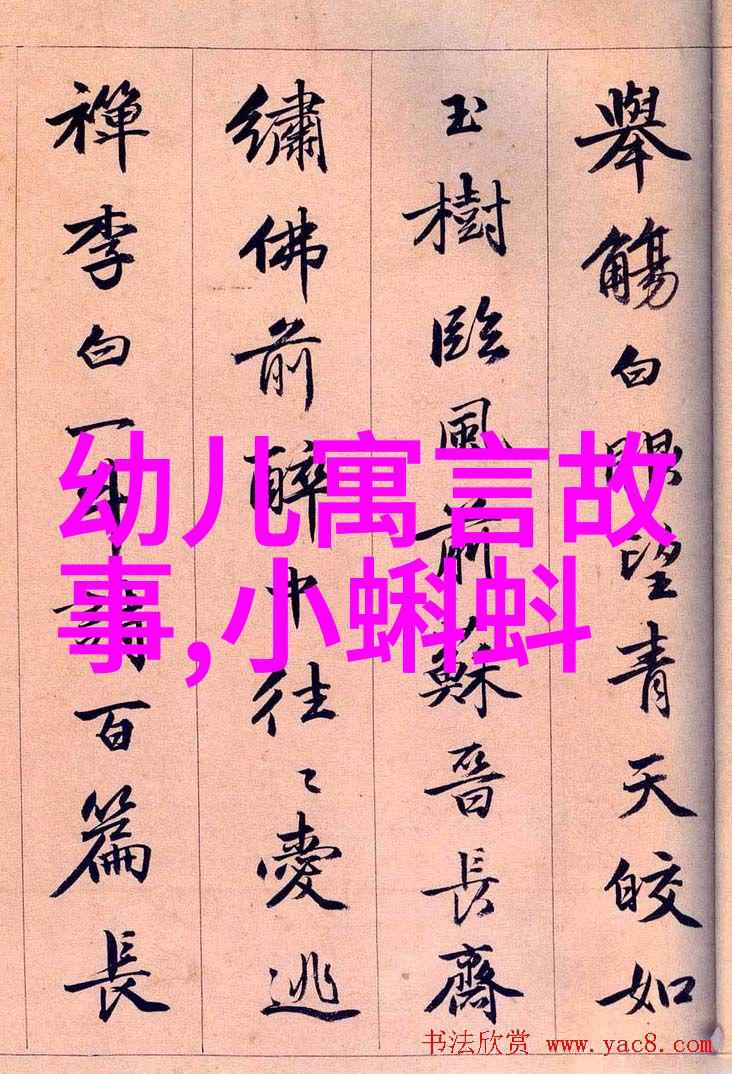 舉觴白眼望青天皎如
玉樹臨風前蘇晉長齋
繡佛前醉中往〻愛逃
禪李白一斗詩百篇長
幼儿寓言故
事,小蝌蚪
书法欣赏 www.yac8.com